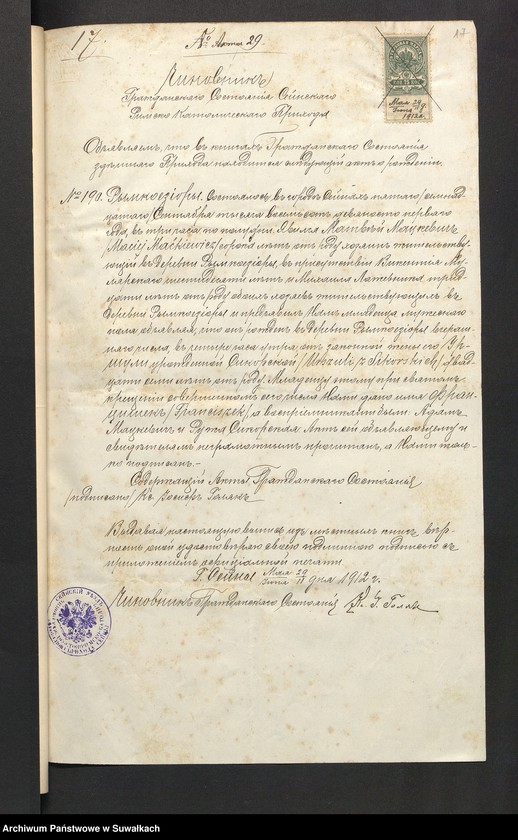 17.
№ Акта 29.
17
Мая 29
Іюня
1912 г.
Чиновникъ
Гражданскаго Состоянія Сейнскаго
Римско Католическаго Прихода
Объявляемъ, что въ книгахъ Гражданскаго Состоянія
здѣшняго Прихода находится слѣдующій актъ о рожденіи
№ 190. Рымкоезіоры. Состоялось въ городѣ Сейнахъ пятаго /семнад
цатаго/ Сентября тысяча восемьсотъ девяносто перваго
года, въ три часа по полудни. Явился Матвѣй Мацкевичъ
/Maciej Mackiewicz/ сорока лѣтъ отъ роду жительству
ющій въ деревнѣ Рымкоезіоры, въ присутствіи
шестидесяти лѣтъ и Михаила трид
цати лѣтъ отъ роду обоихъ жительствующихъ въ
деревнѣ Рымкоезіоры и предъявилъ Намъ младенца мужескаго
пола объявляя, что онъ рожденъ въ деревнѣ Рымкоезіоры вчераш
няго числа, въ четыре часа утра, отъ законной жены его Ур
шули, урожденной Сикорской /Urszuli z Sikorskich/ двад
цати семи лѣтъ отъ роду. Младенцу этому при святомъ
крещеніи совершенномъ его числа Нами дано имя Фран
цишекъ /Franciszek/, а воспріемниками были: Адамъ
Мацкевичъ и Сикорская. Актъ сей объявляющему и
свидѣтелямъ неграмотнымъ прочитанъ, а Нами толь
ко подписанъ.–
Содержащій Акты Гражданскаго Состоянія
/подписано/ Кс. Іосифъ Голакъ
Выдавая настоящую выпись изъ мѣстныхъ книгъ, вѣр
ность оной удостовѣряю своею подлинною подписью съ
приложеніемъ оффиціальной печати.
Г. Сейны Мая 29
Іюня 11 дня 1912 г.
Чиновникъ Гражданскаго Состоянія Кс. І. Голакъ
Archiwum Państwowe w Suwałkach